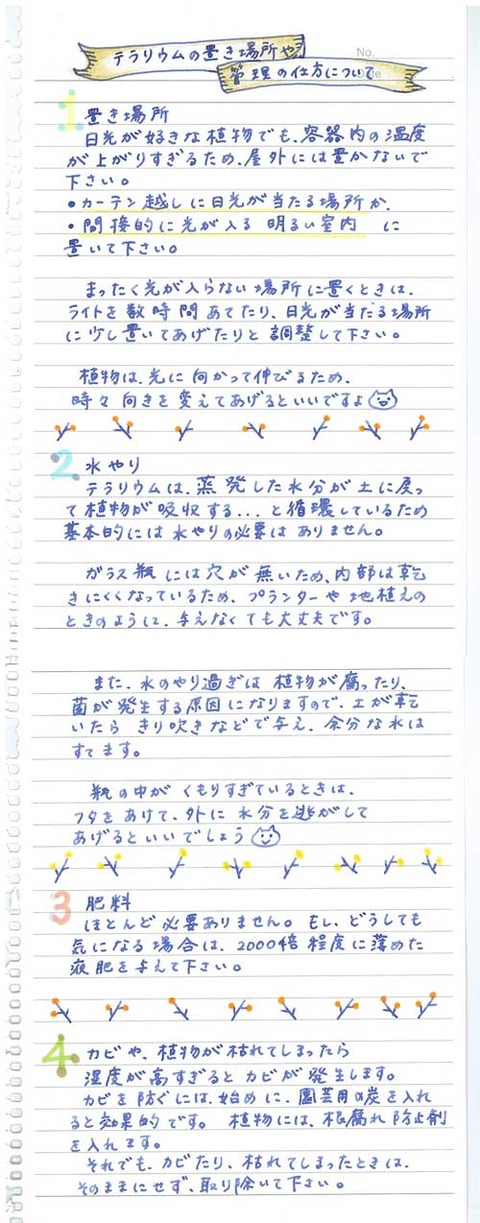 テラリウムの置き場所や
No.
管理の仕方について
1 置き場所
日光が好きな植物でも、容器内の温度
が上がりすぎるため、屋外には置かないで
下さい。
•カーテン越しに日光が当たる場所か、
•間接的に光が入る 明るい室内 に
置いて下さい。
まったく光が入らない場所に置くときは、
ライトを数時間あてたり、日光が当たる場所
に少し置いてあげたりと調整して下さい。
植物は、光に向かって伸びるため、
時々向きを変えてあげるといいですよ
2 水やり
テラリウムは、蒸発した水分が土に戻っ
て植物が吸収する...と循環しているため
基本的には水やりの必要はありません。
ガラス瓶には穴が無いため、内部は乾
きにくくなっているため、プランターや地植えの
ときのように、与えなくても大丈夫です。
また、水のやり過ぎは植物が腐ったり、
菌が発生する原因になりますので、土が乾
いたらきり吹きなどで与え、余分な水は
すてます。
瓶の中がくもりすぎているときは、
フタをあけて、外に水分を逃がして
あげるといいでしょう
3 肥料
ほとんど必要ありません。もし、どうしても
気になる場合は、2000倍程度に薄めた
液肥を与えて下さい。
4 カビや、植物が枯れてしまったら
湿度が高すぎるとカビが発生します。
カビを防ぐには、始めに、園芸用の炭を入れ
ると効果的です。植物には、根腐れ防止剤
を入れます。
それでも、カビたり、枯れてしまったときは、
そのままにせず、取り除いて下さい。